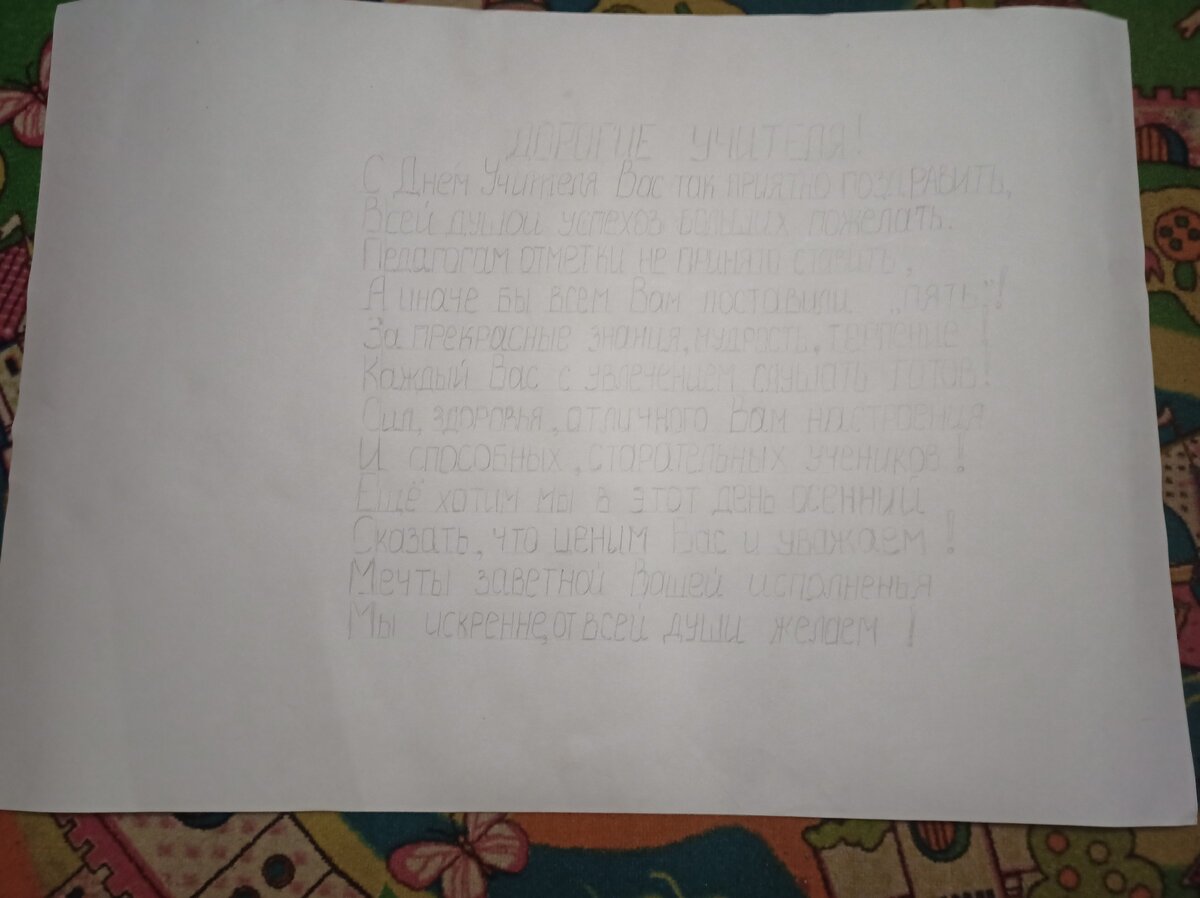 ДОРОГИЕ УЧИТЕЛЯ!
С Днём Учителя Вас так приятно поздравить,
Всей душой успехов больших пожелать.
Педагогам отметки не принято ставить,
А иначе бы всем Вам поставили „пять"!
За прекрасные знания, мудрость, терпение!
Каждый Вас с увлечением слушать готов!
Сил, здоровья, отличного Вам настроения
И способных, старательных учеников!
Ещё хотим мы в этот день осенний
Сказать, что ценим Вас и уважаем!
Мечты заветной Вашей исполненья
Мы искренне, от всей души желаем!